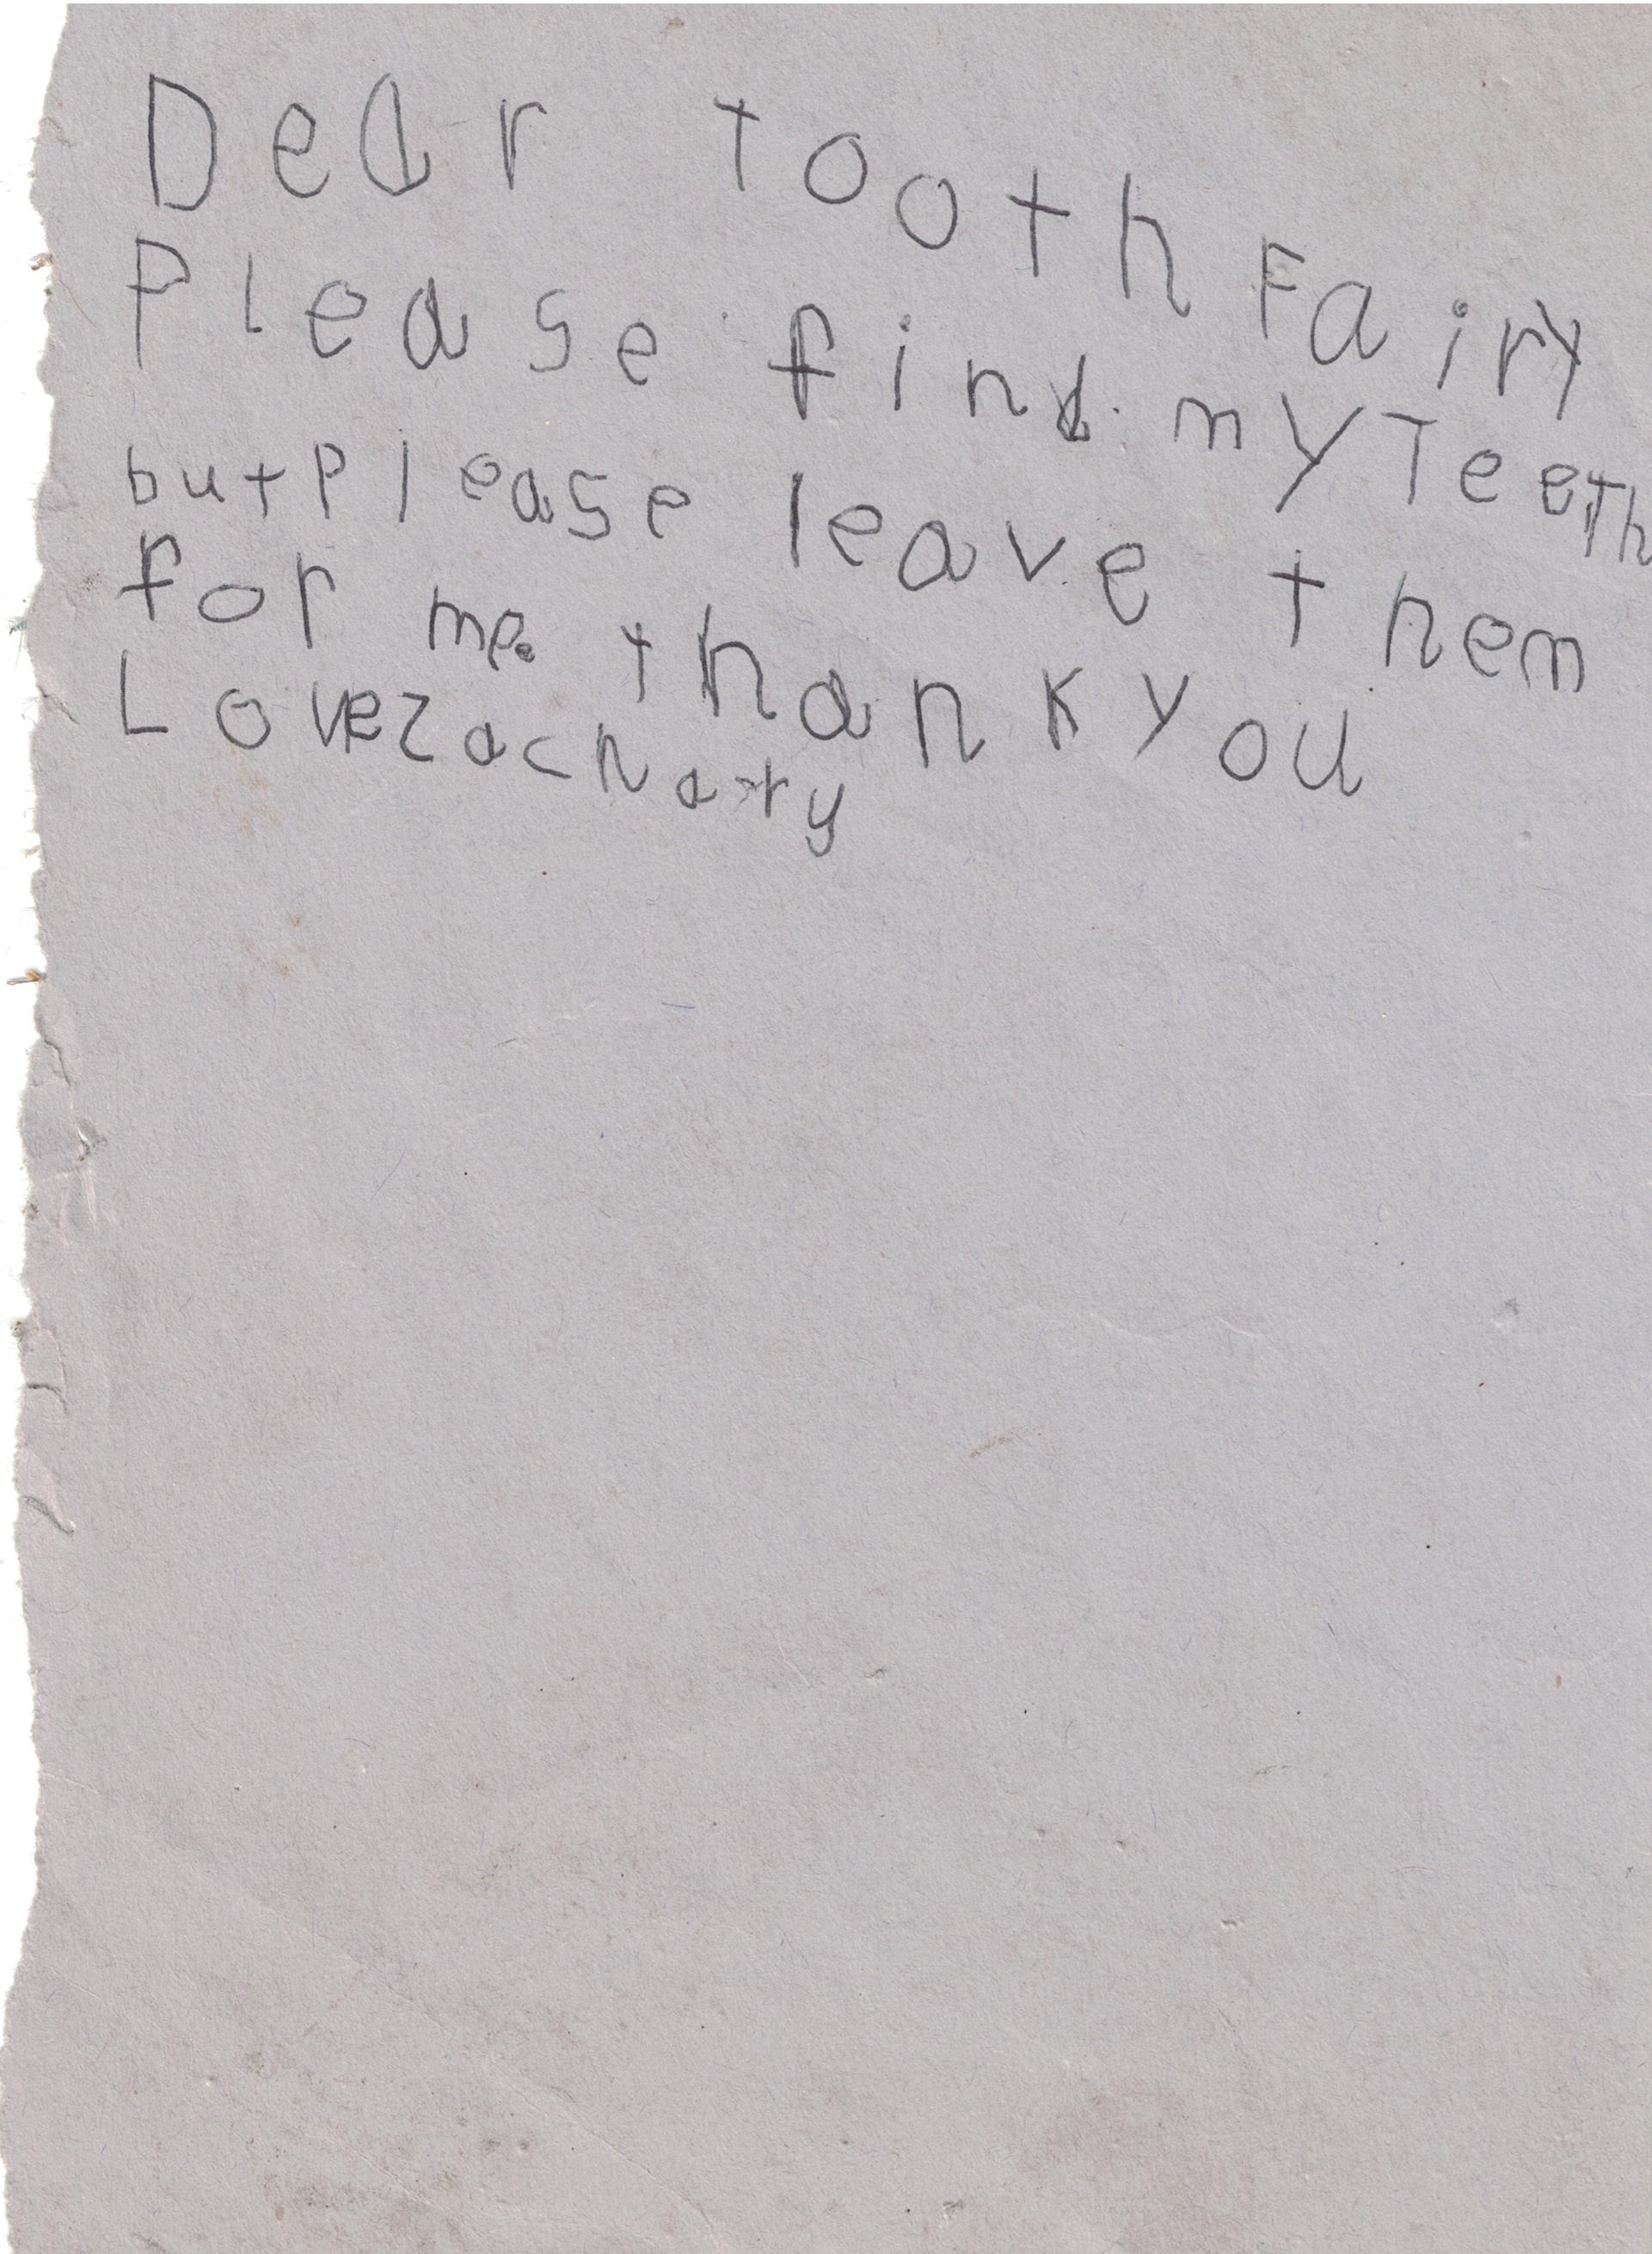 Dear Tooth Fairy
Please find my Teeth
but please leave them
for me. thank you
Love Zachary